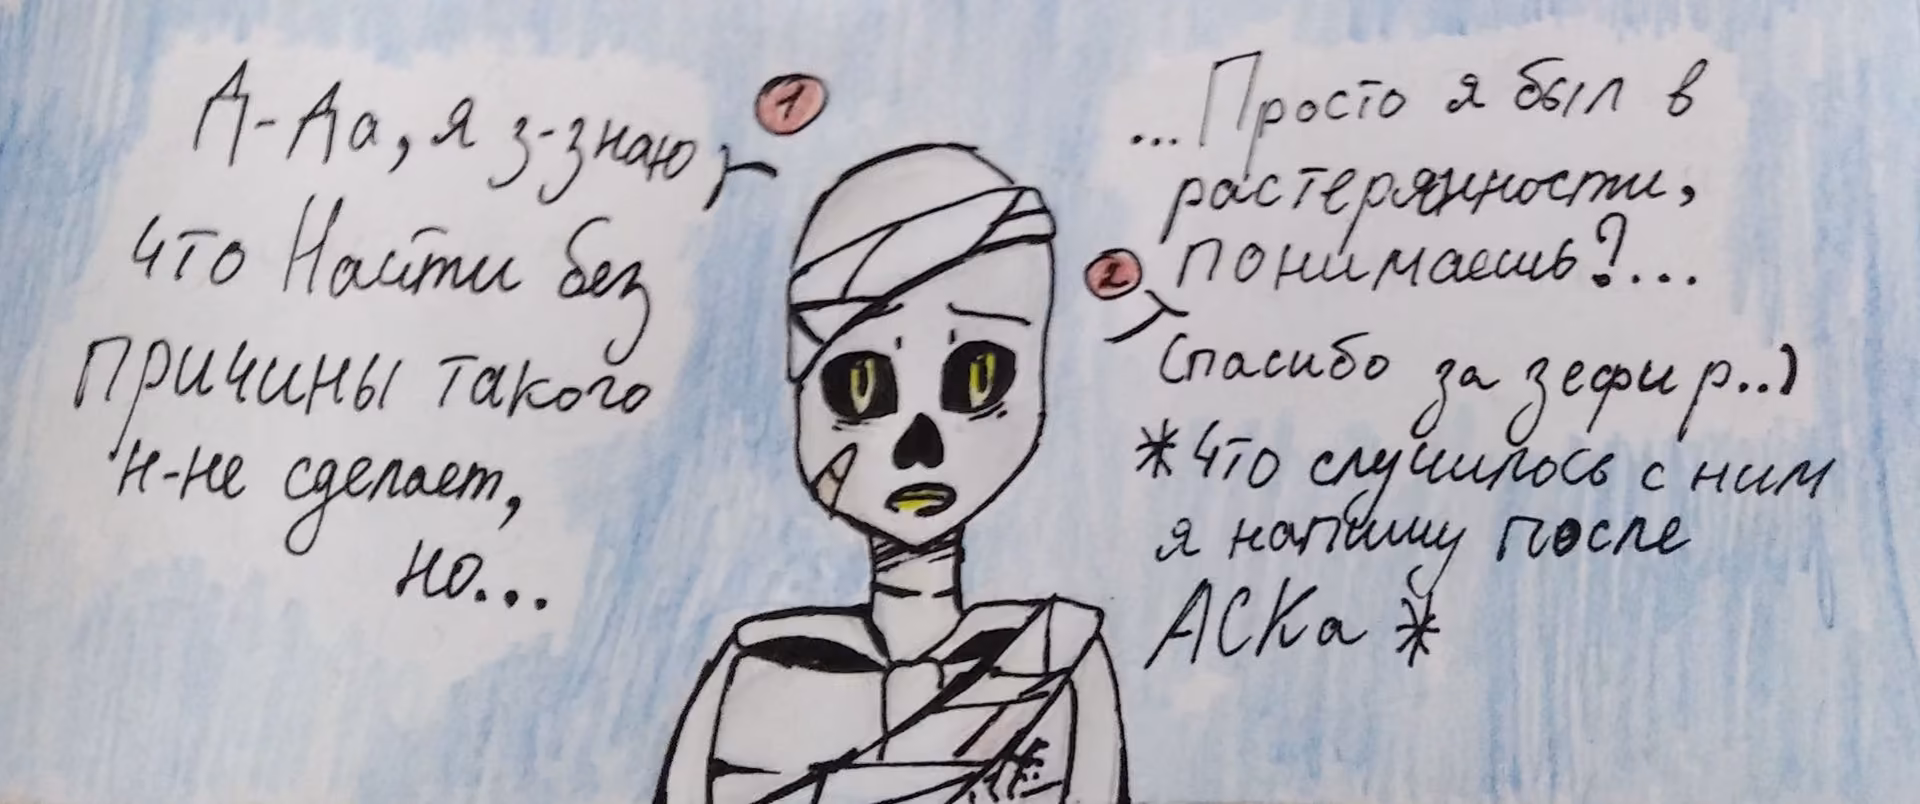 1
Д-Да, я з-знаю
что Найти без
причины такого
н-не сделает,
но...
2
...Просто я был в
растерянности,
понимаешь?...
(пасибо за зефир..)
*Что случилось с ним
я напишу после
АСКа*